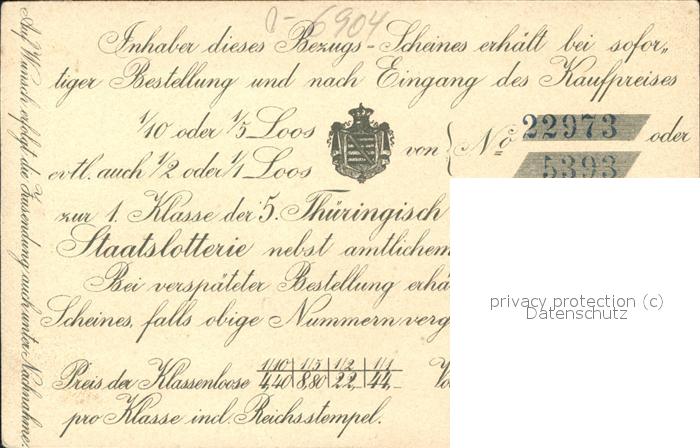 0-6904
Inhaber dieses Bezugs-Scheines erhält bei sofor-
tiger Bestellung und nach Eingang des Kaufpreises
1/10 oder 1/5 Loos von No 22973 oder
evtl. auch 1/2 oder 1/1 Loos 5393
zur 1. Klasse der 5. Thüringisch
Staatslotterie nebst amtlichem
Bei verspäteter Bestellung erhä
Scheines, falls obige Nummern verg
1/10 1/5 1/2 1/1
Preis der Klassenloose 4,40 8,80 22,- 44,-
pro Klasse incl. Reichsstempel.
Auf Wunsch erfolgt die Zusendung auch unter Nachnahme.
privacy protection (c)
Datenschutz